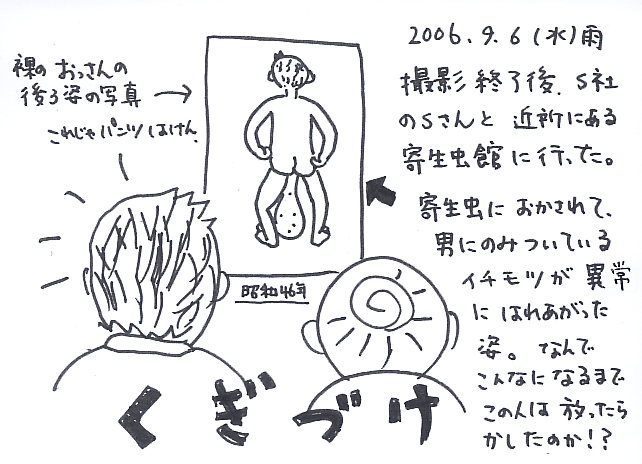 2006.9.6(水)雨
撮影終了後、S社
のSさんと近所にある
寄生虫館に行った。
寄生虫におかされて、
男にのみついている
イチモツが異常
にはれあがった
姿。なんで
こんなになるまで
この人は放ったら
かしたのか!?
裸のおっさんの
後ろ姿の写真→
これじゃパンツはけん。
昭和46年
くぎづけ